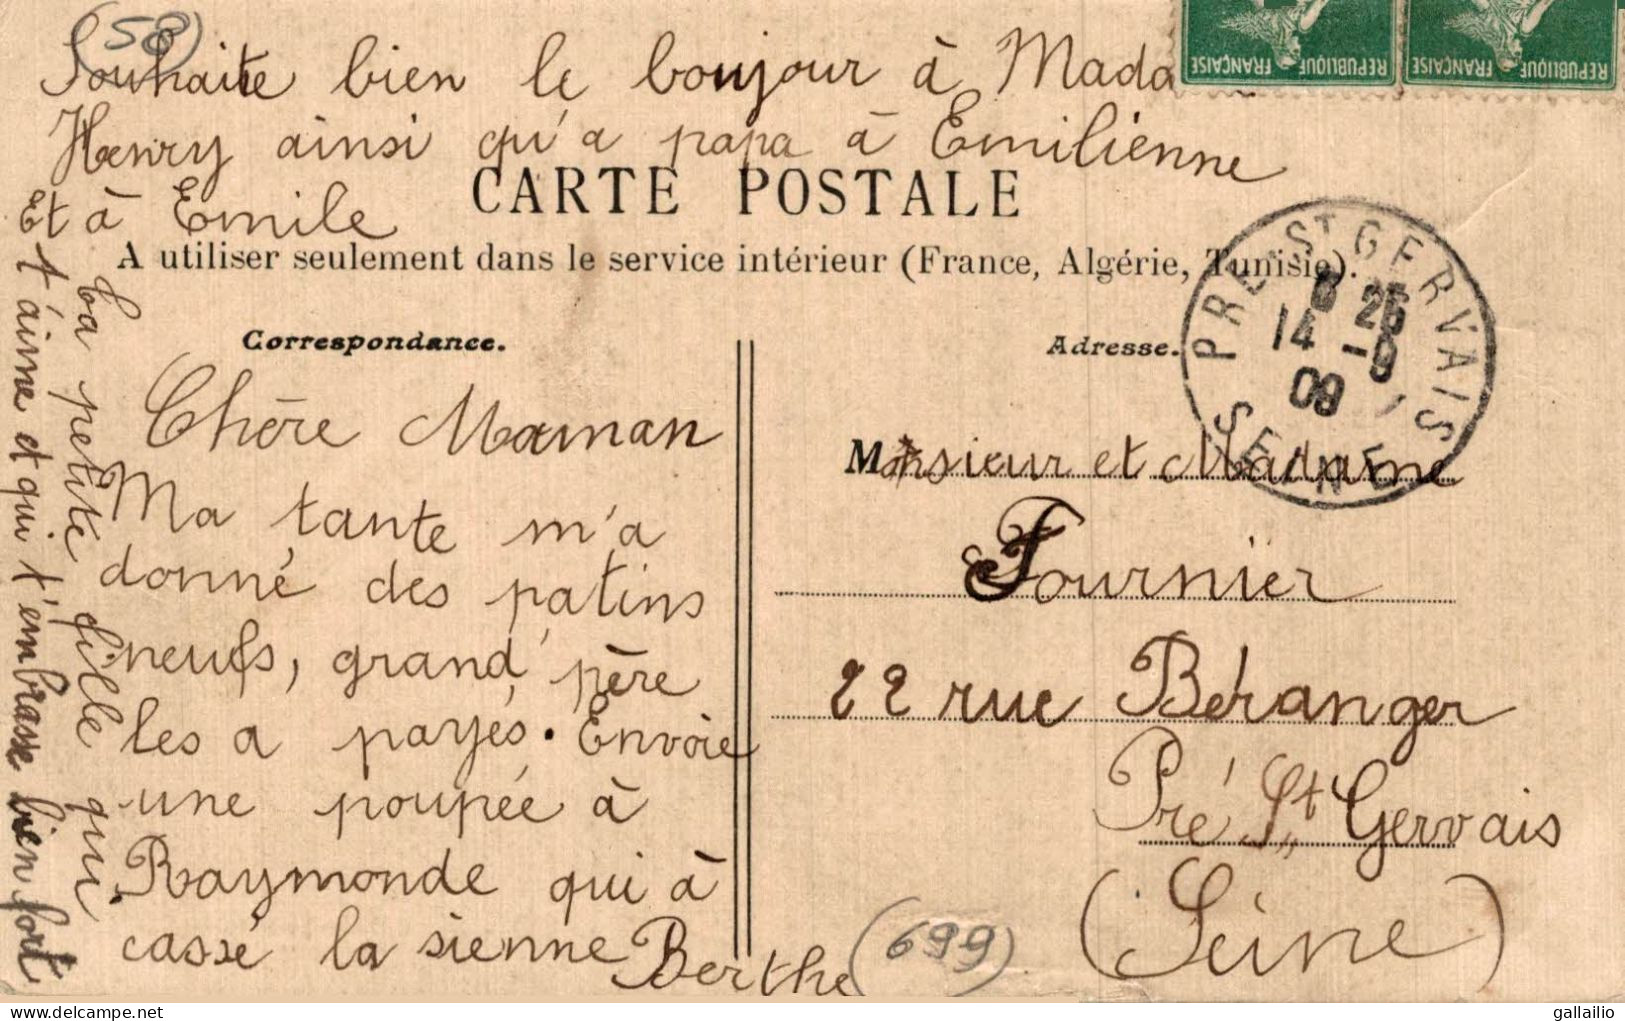 (58)
Souhaite bien le boujour à Mada
Henry ainsi qu'a papa à Emilienne
Et à Emile
REPUBLIQUE FRANÇAISE
REPUBLIQUE FRANÇAISE
CARTE POSTALE
A utiliser seulement dans le service intérieur (France, Algérie, Tunisie).
Correspondance.
Chère Maman
Ma tante m'a
donné des patins
neufs, grand père
les a payés. Envoie
une poupée à
Raymonde qui à
cassé la sienne
Berthe
ta petite fille qui
t'aime et qui t'embrasse bien fort
Adresse.
PRE-ST GERVAIS
8 25
14 -9
09
SEINE
Monsieur et Madame
Fournïer
22 rue Béranger
Pré St Gervais
(Seine)
(699)
www.delcampe.net
gallailio